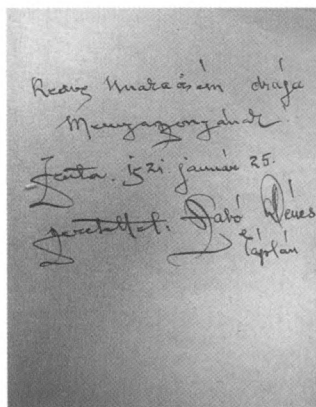 drága
Menyasszonyának.
Zenta. 1921. január 25.
szeretettel: Szabó Dénes
káplán